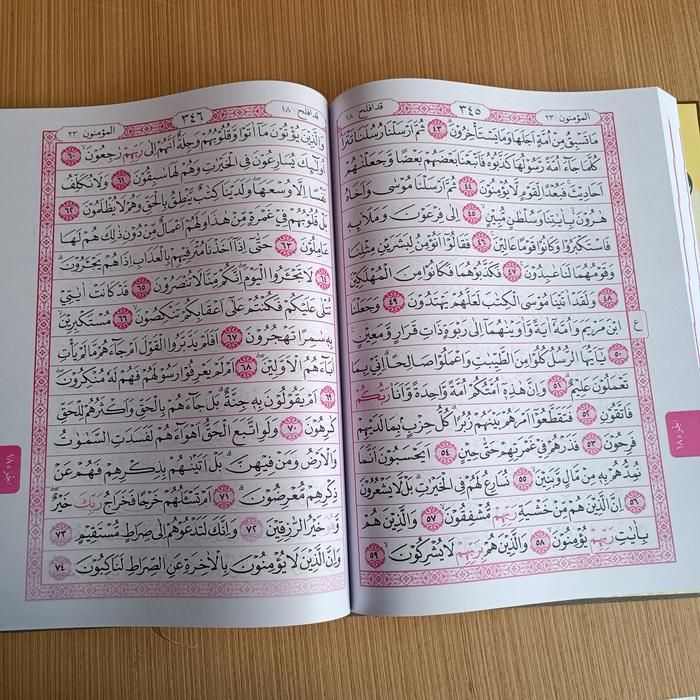 المؤمنون ٢٣
٣٤٥
قد افلح ١٨
مَا تَسْبِقُ مِنْ اُمَّةٍ اَجَلَهَا وَمَا يَسْتَأْخِرُونَ ٤٣ ثُمَّ اَرْسَلْنَا رُسُلَنَا تَتْرَا
كُلَّمَا جَاءَ اُمَّةً رَسُولُهَا كَذَّبُوهُ فَاَتْبَعْنَا بَعْضَهُمْ بَعْضًا وَجَعَلْنَاهُمْ
اَحَادِيثَ فَبُعْدًا لِقَوْمٍ لَا يُؤْمِنُونَ ٤٤ ثُمَّ اَرْسَلْنَا مُوسٰى وَاَخَاهُ
هٰرُونَ بِاٰيَاتِنَا وَسُلْطَانٍ مُبِينٍ ٤٥ اِلٰى فِرْعَوْنَ وَمَلَائِهٖ
فَاسْتَكْبَرُوا وَكَانُوا قَوْمًا عَالِينَ ٤٦ فَقَالُوا اَنُؤْمِنُ لِبَشَرَيْنِ مِثْلِنَا
وَقَوْمُهُمَا لَنَا عَابِدُونَ ٤٧ فَكَذَّبُوهُمَا فَكَانُوا مِنَ الْمُهْلَكِينَ
٤٨ وَلَقَدْ اٰتَيْنَا مُوسَى الْكِتَابَ لَعَلَّهُمْ يَهْتَدُونَ ٤٩ وَجَعَلْنَا
ابْنَ مَرْيَمَ وَاُمَّهُ اٰيَةً وَاٰوَيْنَاهُمَا اِلٰى رَبْوَةٍ ذَاتِ قَرَارٍ وَمَعِينٍ
٥٠ يَا اَيُّهَا الرُّسُلُ كُلُوا مِنَ الطَّيِّبَاتِ وَاعْمَلُوا صَالِحًا اِنِّي بِمَا
تَعْمَلُونَ عَلِيمٌ ٥١ وَاِنَّ هٰذِهٖ اُمَّتُكُمْ اُمَّةً وَاحِدَةً وَاَنَا رَبُّكُمْ
فَاتَّقُونِ ٥٢ فَتَقَطَّعُوا اَمْرَهُمْ بَيْنَهُمْ زُبُرًا كُلُّ حِزْبٍ بِمَا لَدَيْهِمْ
فَرِحُونَ ٥٣ فَذَرْهُمْ فِي غَمْرَتِهِمْ حَتّٰى حِينٍ ٥٤ اَيَحْسَبُونَ اَنَّمَا
نُمِدُّهُمْ بِهٖ مِنْ مَالٍ وَبَنِينَ ٥٥ نُسَارِعُ لَهُمْ فِي الْخَيْرَاتِ بَلْ لَا يَشْعُرُونَ
٥٦ اِنَّ الَّذِينَ هُمْ مِنْ خَشْيَةِ رَبِّهِمْ مُشْفِقُونَ ٥٧ وَالَّذِينَ هُمْ
بِاٰيَاتِ رَبِّهِمْ يُؤْمِنُونَ ٥٨ وَالَّذِينَ هُمْ بِرَبِّهِمْ لَا يُشْرِكُونَ ٥٩
ع
جزء ١٨
المؤمنون ٢٣
٣٤٦
قد افلح ١٨
وَالَّذِينَ يُؤْتُونَ مَا اٰتَوْا وَقُلُوبُهُمْ وَجِلَةٌ اَنَّهُمْ اِلٰى رَبِّهِمْ رَاجِعُونَ ٦٠
اُولٰئِكَ يُسَارِعُونَ فِي الْخَيْرَاتِ وَهُمْ لَهَا سَابِقُونَ ٦١ وَلَا نُكَلِّفُ
نَفْسًا اِلَّا وُسْعَهَا وَلَدَيْنَا كِتَابٌ يَنْطِقُ بِالْحَقِّ وَهُمْ لَا يُظْلَمُونَ ٦٢
بَلْ قُلُوبُهُمْ فِي غَمْرَةٍ مِنْ هٰذَا وَلَهُمْ اَعْمَالٌ مِنْ دُونِ ذٰلِكَ هُمْ لَهَا
عَامِلُونَ ٦٣ حَتّٰى اِذَا اَخَذْنَا مُتْرَفِيهِمْ بِالْعَذَابِ اِذَا هُمْ يَجْئَرُونَ
٦٤ لَا تَجْئَرُوا الْيَوْمَ اِنَّكُمْ مِنَّا لَا تُنْصَرُونَ ٦٥ قَدْ كَانَتْ اٰيَاتِي
تُتْلٰى عَلَيْكُمْ فَكُنْتُمْ عَلٰى اَعْقَابِكُمْ تَنْكِصُونَ ٦٦ مُسْتَكْبِرِينَ
بِهٖ سَامِرًا تَهْجُرُونَ ٦٧ اَفَلَمْ يَدَّبَّرُوا الْقَوْلَ اَمْ جَاءَهُمْ مَا لَمْ يَأْتِ
اٰبَاءَهُمُ الْاَوَّلِينَ ٦٨ اَمْ لَمْ يَعْرِفُوا رَسُولَهُمْ فَهُمْ لَهُ مُنْكِرُونَ
٦٩ اَمْ يَقُولُونَ بِهٖ جِنَّةٌ بَلْ جَاءَهُمْ بِالْحَقِّ وَاَكْثَرُهُمْ لِلْحَقِّ
كَارِهُونَ ٧٠ وَلَوِ اتَّبَعَ الْحَقُّ اَهْوَاءَهُمْ لَفَسَدَتِ السَّمٰوَاتُ
وَالْاَرْضُ وَمَنْ فِيهِنَّ بَلْ اَتَيْنَاهُمْ بِذِكْرِهِمْ فَهُمْ عَنْ
ذِكْرِهِمْ مُعْرِضُونَ ٧١ اَمْ تَسْئَلُهُمْ خَرْجًا فَخَرَاجُ رَبِّكَ خَيْرٌ
وَهُوَ خَيْرُ الرَّازِقِينَ ٧٢ وَاِنَّكَ لَتَدْعُوهُمْ اِلٰى صِرَاطٍ مُسْتَقِيمٍ ٧٣
وَاِنَّ الَّذِينَ لَا يُؤْمِنُونَ بِالْاٰخِرَةِ عَنِ الصِّرَاطِ لَنَاكِبُونَ ٧٤
جزء ١٨